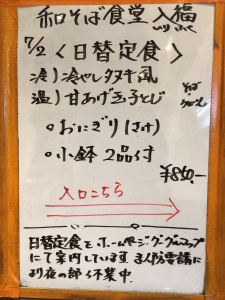 和そば食堂 入福
いりふく
7/2 〈日替定食〉
冷) 冷やしタヌキ風
そば
うどん
温) 甘あげ玉子とじ
○おにぎり(さけ)
○小鉢 2品付
¥850,-
入口こちら
日替定食を、ホームページ、グーグルマップ
にて案内しています。
夜の部 休業中